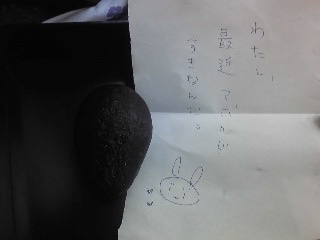 わたし、
最近アボカド
すきなんだ。